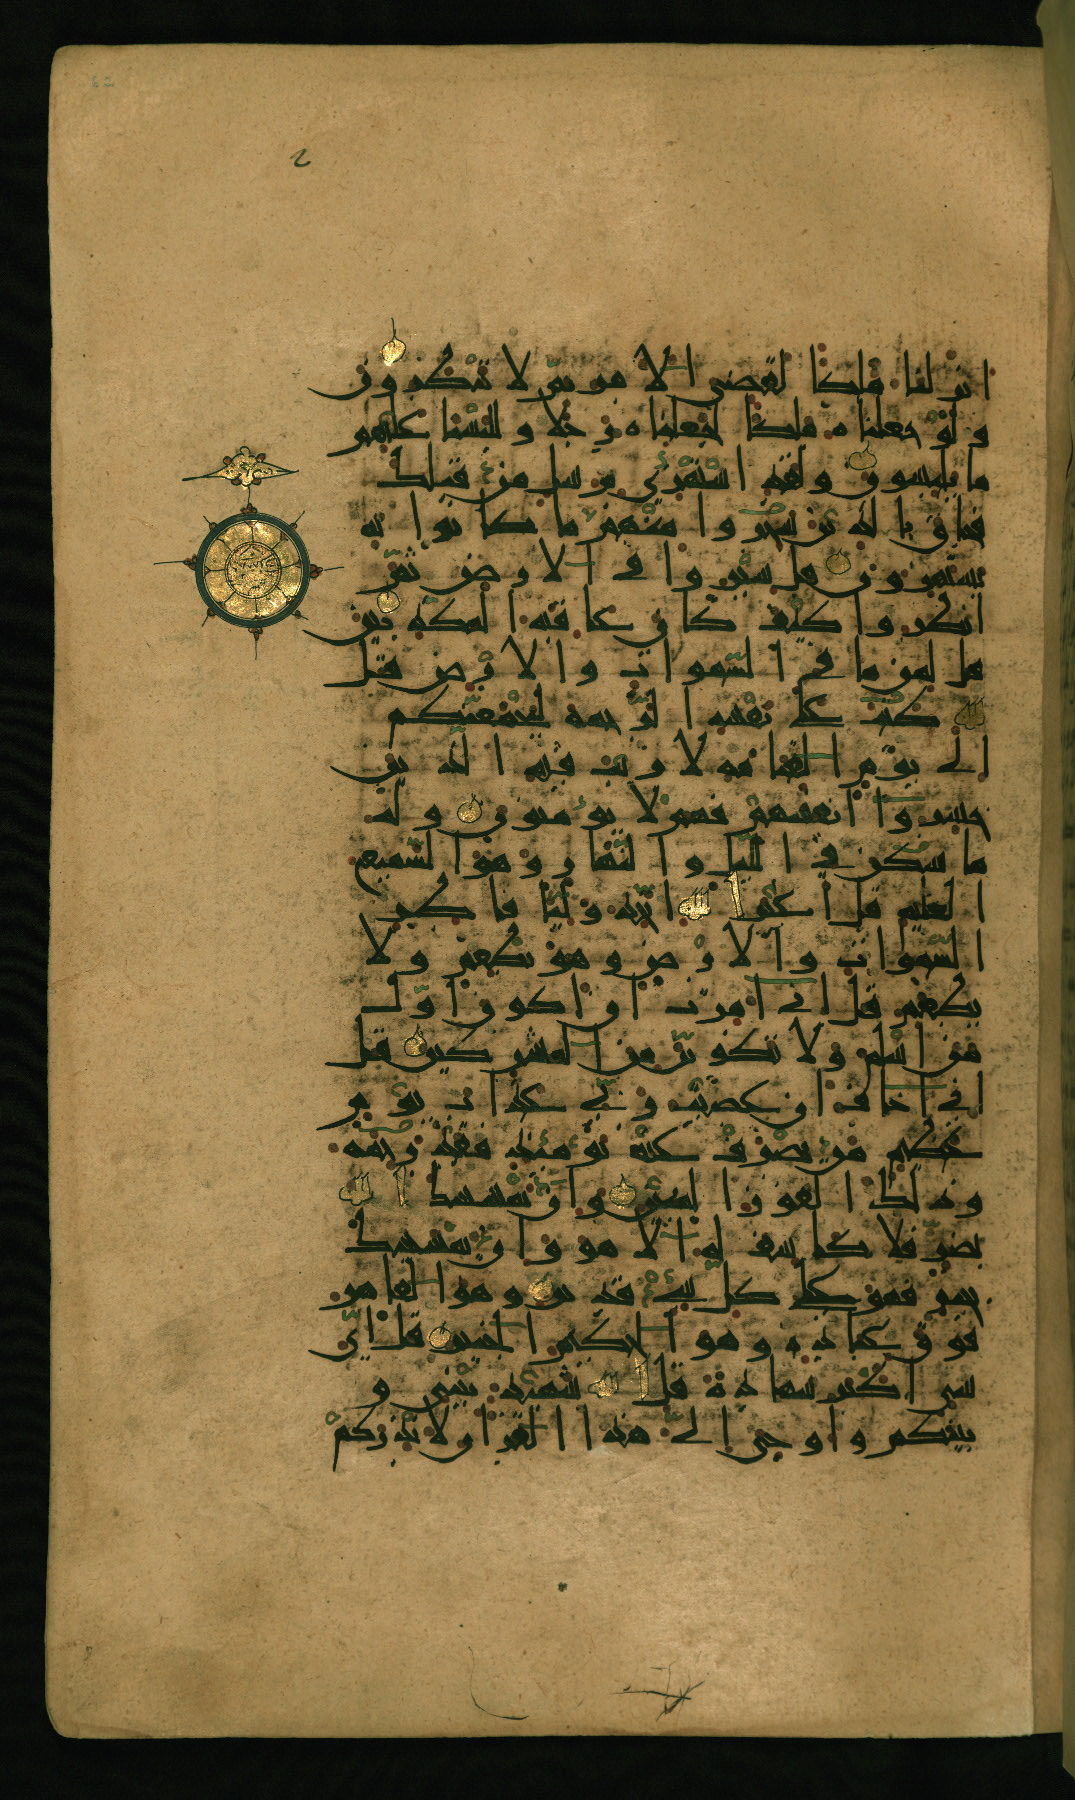 انزلنا ملكا لقضى الامر ثم لا ينظرون
ولو جعلناه ملكا لجعلناه رجلا وللبسنا عليهم
ما يلبسون ولقد استهزئ برسل من قبلك
فحاق بالذين سخروا منهم ما كانوا به
يستهزون قل سيروا في الارض ثم
انظروا كيف كان عاقبة المكذبين
قل لمن ما في السموات والارض قل
لله كتب على نفسه الرحمة ليجمعنكم
الى يوم القيامة لا ريب فيه الذين
خسروا انفسهم فهم لا يؤمنون وله
ما سكن في الليل والنهار وهو السميع
العليم قل اغير الله اتخذ وليا فاطر
السموات والارض وهو يطعم ولا
يطعم قل اني امرت ان اكون اول
من اسلم ولا تكونن من المشركين قل
اني اخاف ان عصيت ربي عذاب يوم
عظيم من يصرف عنه يومئذ فقد رحمه
وذلك الفوز المبين وان يمسسك الله
بضر فلا كاشف له الا هو وان يمسسك
بخير فهو على كل شئ قدير وهو القاهر
فوق عباده وهو الحكيم الخبير قل اي
شئ اكبر شهادة قل الله شهيد بيني و
بينكم واوحي الي هذا القران لانذركم